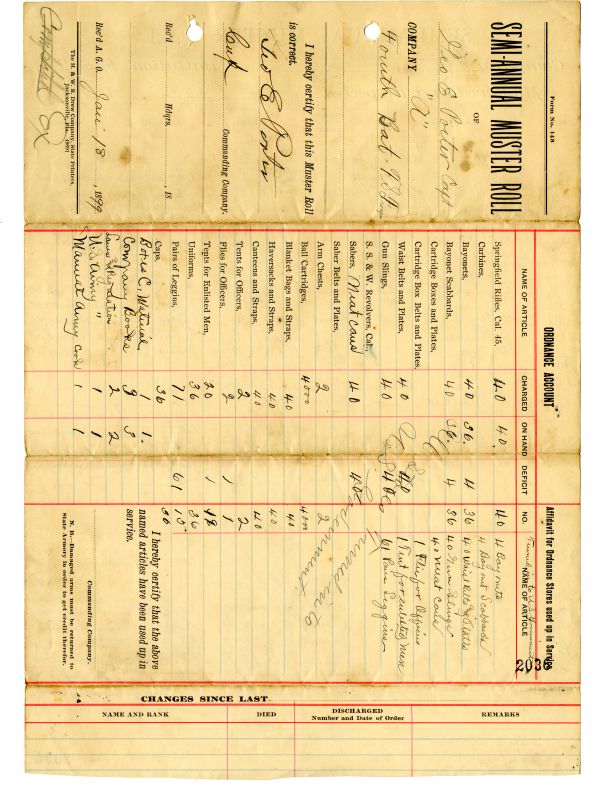 Form No. 148
SEMI-ANNUAL MUSTER ROLL
OF
Geo E Porter Capt
COMPANY "N"
Fourth Bat.
I hereby certify that this Muster Roll
is correct.
Geo E Porter
Capt Commanding Company.
Rec'd Hdqrs. , 18
Rec'd A. G. O. Jan 18 , 1899
The H. & W. B. Drew Company, State Printers,
Jacksonville, Fla.
ORDNANCE ACCOUNT
NAME OF ARTICLE CHARGED ON HAND DEFICIT NO.
Springfield Rifles, Cal. 45, 40 40 40
Carbines,
Bayonets, 40 36 4 36
Bayonet Scabbards, 40 36 4 36
Cartridge Boxes and Plates,
Cartridge Box Belts and Plates,
Waist Belts and Plates, 40 40
Gun Slings, 40 40
S. S. & W. Revolvers, Cal.
Sabers, Meat cans 40 40
Saber Belts and Plates,
Arm Chests, 2 2
Ball Cartridges, 4000 4000
Blanket Bags and Straps, 40 40
Haversacks and Straps, 40 40
Canteens and Straps, 40 40
Tents for Officers, 2 2
Flies for Officers, 2 1 1
Tents for Enlisted Men, 20 1 19
Uniforms, 36 36
Pairs of Leggins, 71 61 10
Caps, 36 36
Books C. 1 1
Company Books 3 3
2 2
U.S. Army " 1 1
Manual Army Cook 1 1
Affidavit for Ordnance Stores used up in Service.
NAME OF ARTICLE
203
4 Bayonets
4 Bayonet Scabbards
40 Waist Belts & Plates
40 Gun Slings
40 Meat Cans
1 Fly for Officers
1 Tent for enlisted Men
61 Pairs Leggins
I hereby certify that the above
named articles have been used up in
service.
Commanding Company.
N. B.—Damaged arms must be returned to
State Armory in order to get credit therefor.
CHANGES SINCE LAST
NAME AND RANK DIED DISCHARGED
Number and Date of Order REMARKS